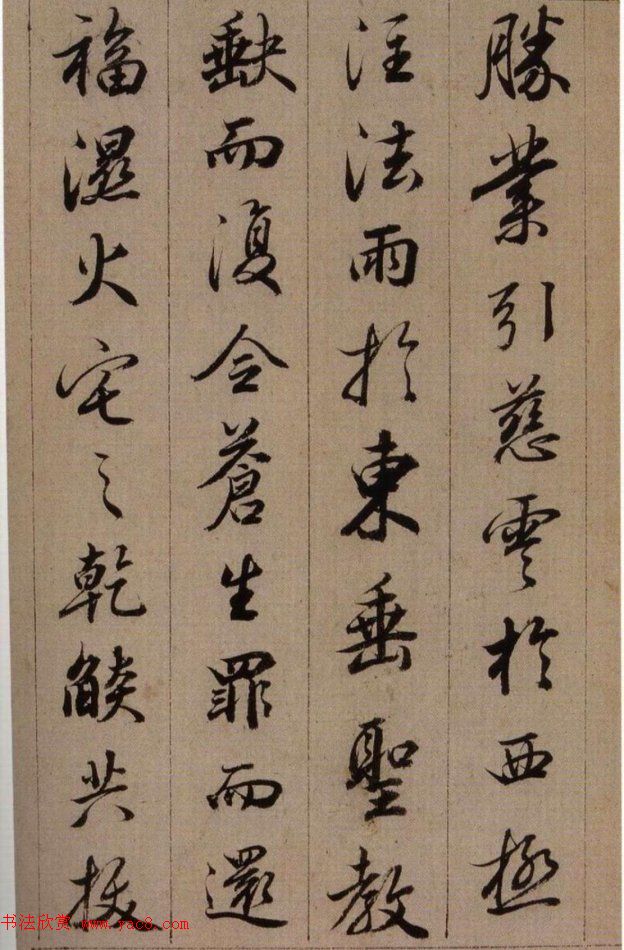 勝業引慈雲於西極
注法雨於東垂聖教
缺而復令蒼生罪而還
福濕火宅之乾燄共拔
书法欣赏 www.yac8.com